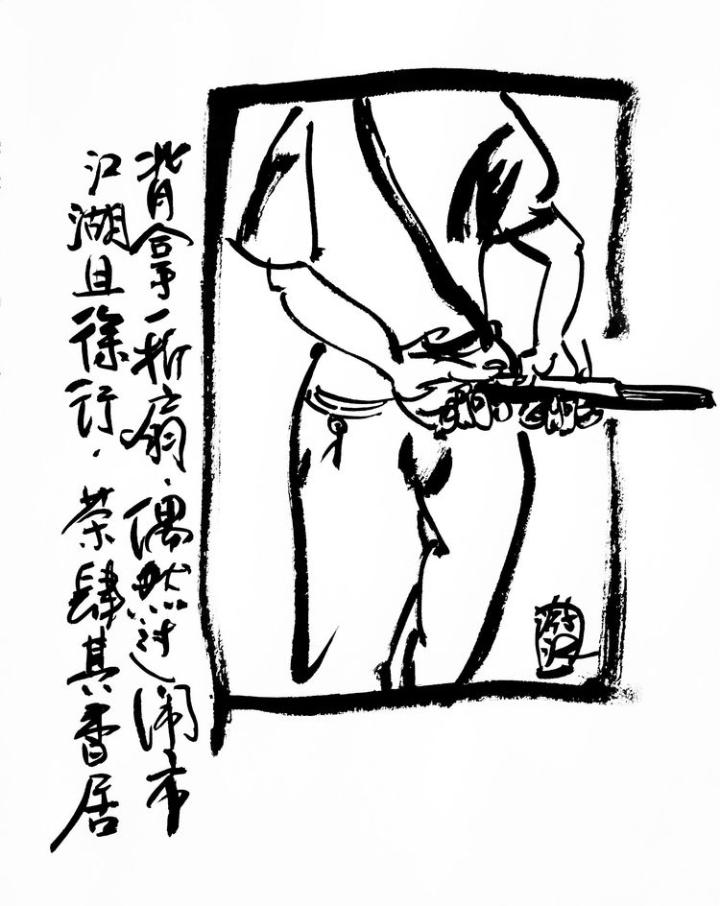 背拿一折扇.偶然过闹市
江湖且徐行.茶肆其香居